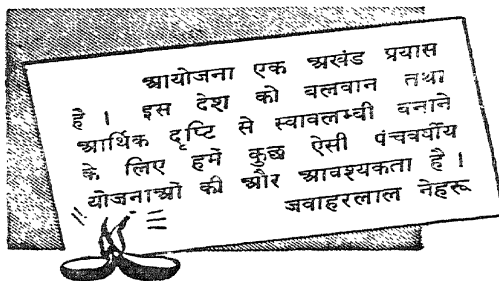 आयोजना एक अखंड प्रयास
है । इस देश को बलवान तथा
आर्थिक दृष्टि से स्वावलम्बी बनाने
के लिए हमें कुछ ऐसी पंचवर्षीय
योजनाओं की और आवश्यकता है ।
जवाहरलाल नेहरू